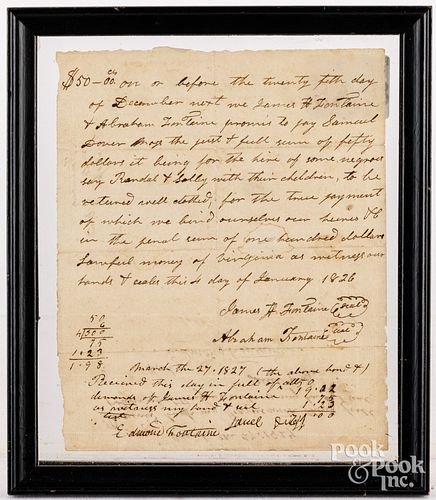 $50–00 cts on or before the twenty fifth day
of December next we James H Fontaine
& Abraham Fontaine promis to pay Samuel
Dover the just & full sum of fifty
dollars it being for the hire of some negroes
say Randal & Solly with their children, to be
returned well clothed, for the true payment
of which we bind ourselves our heires &C
in the penal sum of one hundred dollars
Lawfull money of virginia as witness our
hands & seals this 4 day of January 1826
James H Fontaine seal
Abraham Fontaine seal
50
300
75
1.23
1.98
March the 27. 1827 (the above bond &)
Recieved this day in full of all
demands of James H Fontaine
as witness my hand & seal
test
Edmond Fontaine
POOK & POOK INC.